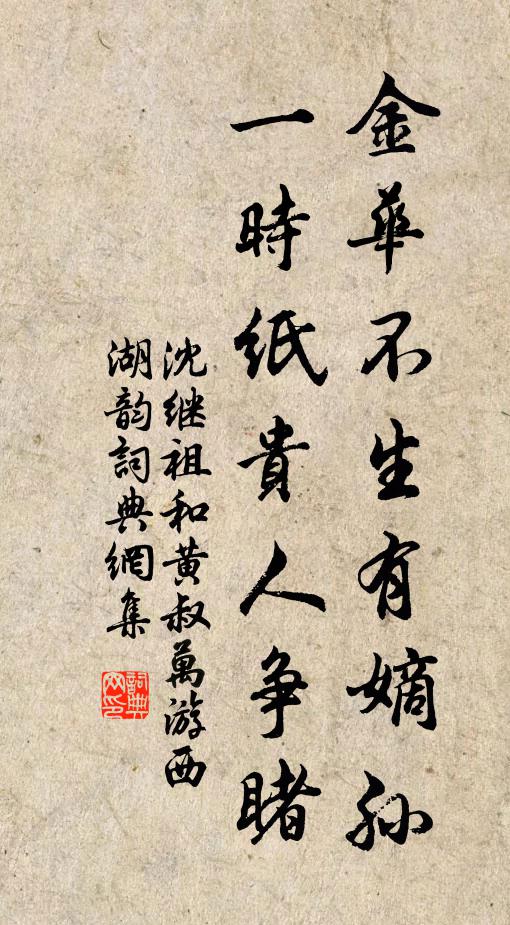 金華不生有嫡孙
一時紙貴人争睹
沈继祖和黄叔萬游西
湖韵詞典網集
詞典
网印